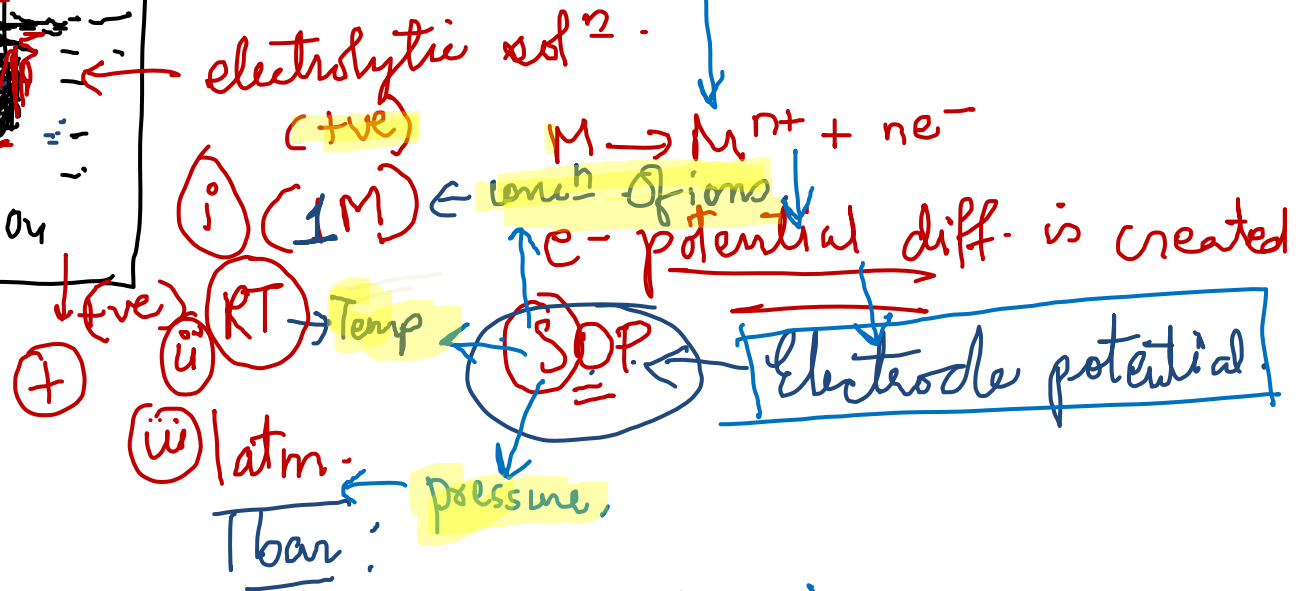 electrolytic solⁿ.
(+ve)
M → Mⁿ⁺ + ne⁻
i (1M) ← concⁿ of ions
e- potential diff. is created
(+ve)
+
ii RT → Temp
SOP.
Electrode potential.
iii 1atm.
pressure,
1bar: